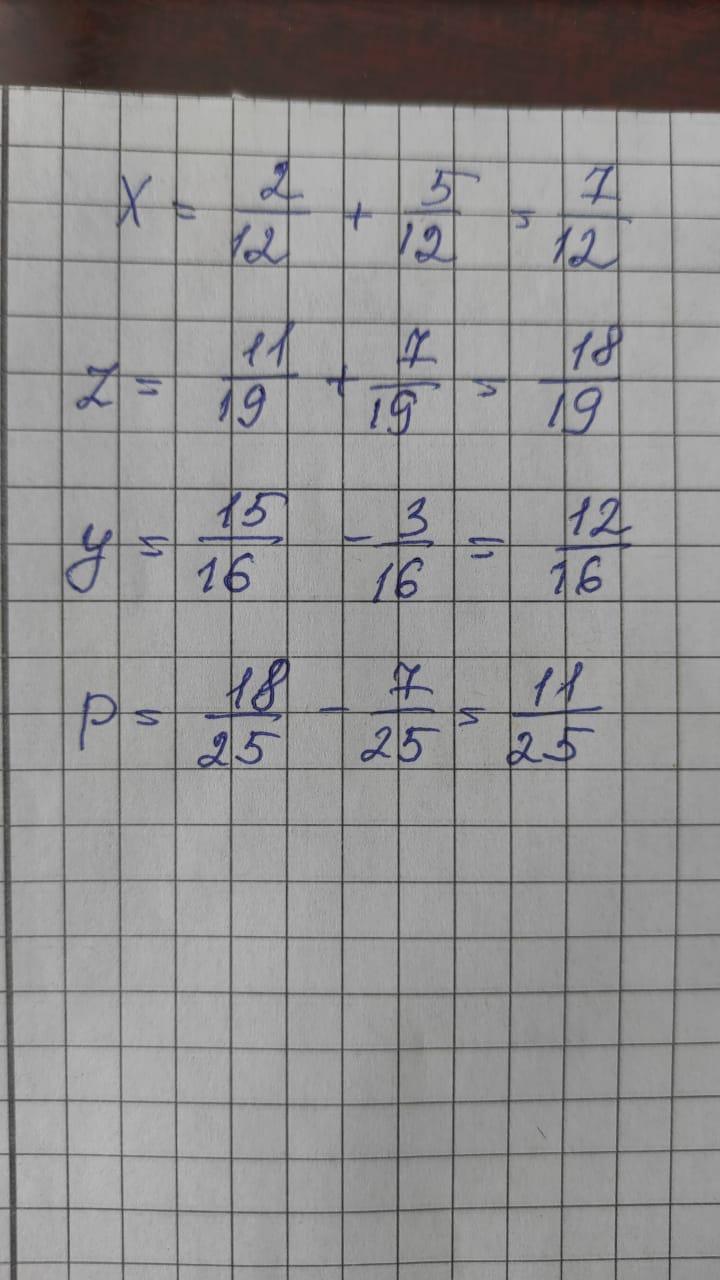 X = 2/12 + 5/12 = 7/12
Z = 11/19 + 7/19 = 18/19
y = 15/16 - 3/16 = 12/16
p = 18/25 - 7/25 = 11/25